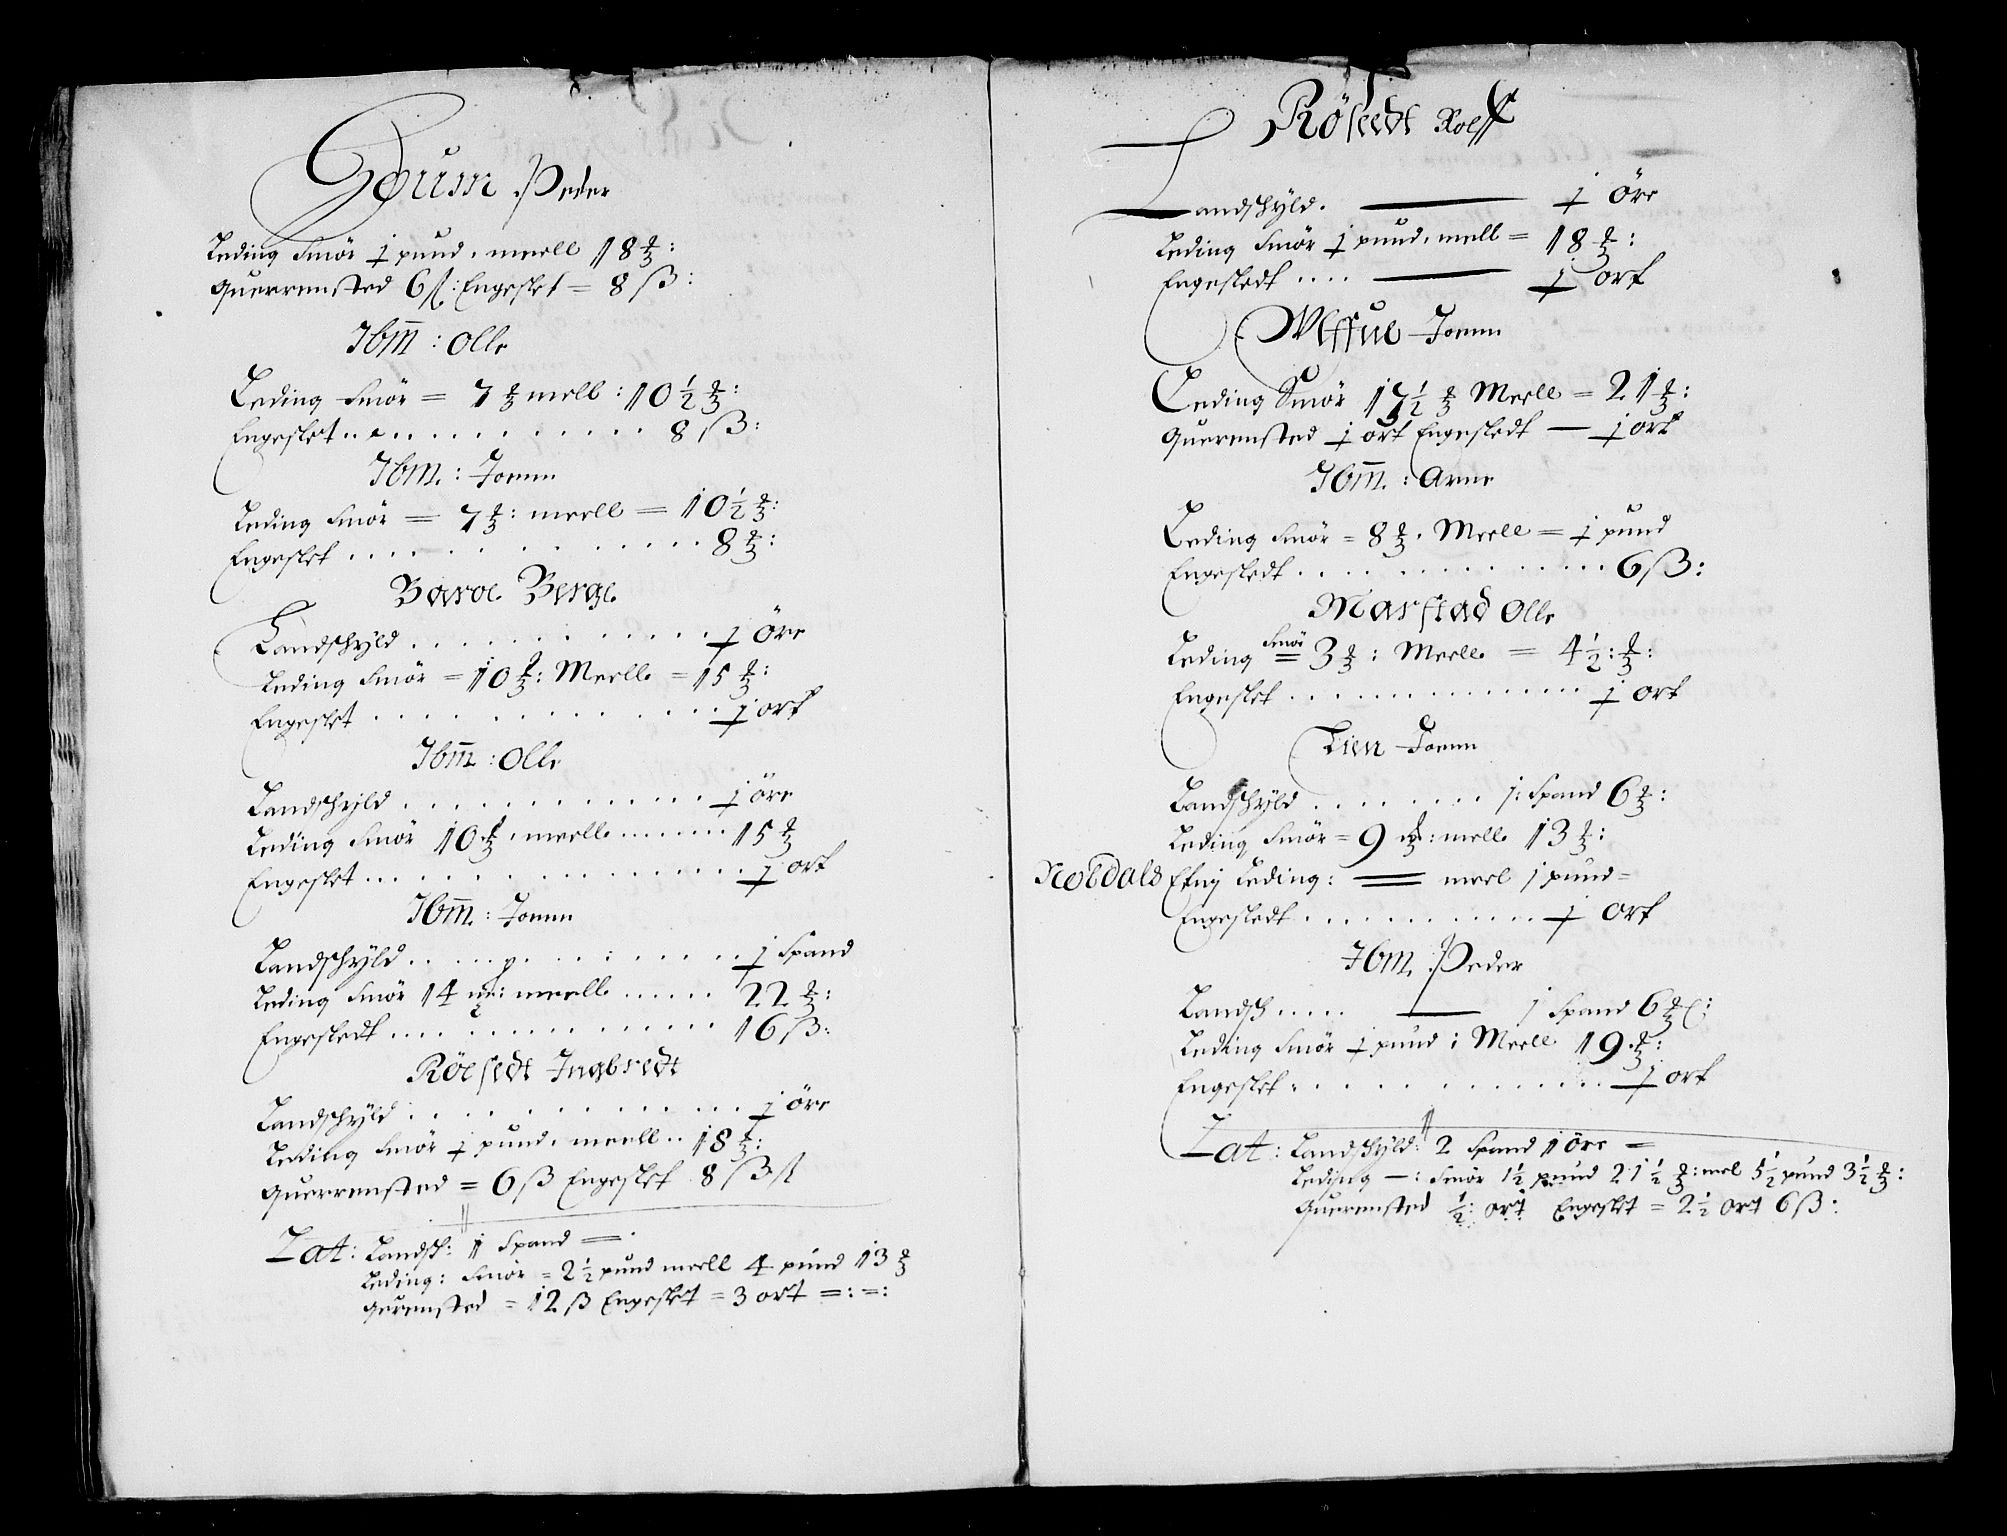 Goum Peder
Leding Smör j pund. meell 18 ℔:
Querrensted 6 ß: Engeslet = 8 ß:
Ibm̄ : Olle
Leding Smör = 7 ℔ mell : 10 ½ ℔:
Engeslet . . . . . . . . 8 ß:
Ibm. : Jonnn
Leding Smör = 7 ℔: meell = 10 ½ ℔:
Engeslet . . . . . . . . 8 ℔:
Baroe Berge
Landschyld . . . . . . . . j öre
Leding Smör = 10 ℔: Meelle = 15 ℔:
Engeslet . . . . . . . . j ort
Ibm̄ : Olle
Landschyld . . . . . . . . j öre
Leding Smör 10 ℔. meelle . . . . 15 ℔
Engeslet . . . . . . . . j ort
Ibm̄. : Jonnn
Landschyld . . . . . . . . j Spand
Leding Smör 14 : meelle . . . . 22 ℔:
Engesledt . . . . . . . . 16 ß:
Röesedt Ingbredt
Landschyld . . . . . . . . j öre
Leding Smör j pund. meell . . 18 ℔:
Querrensted = 6 ß Engeslet 8 ß
Lat: Landsch: 1 Spand =
Leding: Smör = 2 ½ pund meell 4 pund 13 ℔
Qurensted = 12 ß Engeslet = 3 ort =:=:
Rösedt Roeff
Landschyld. — j öre
Leding Smör j pund. mell = 18 ℔:
Engesledt . . . . — j ort
Vlffue Jonnn
Leding Smör 17 ½ ℔ Meell = 21 ℔:
Querensted j ort Engesledt — j ort
Ibm̄. : Arne
Leding Smör = 8 ℔. Meell = j pund
Engesledt . . . . . . . . 6 ß:
Marstad Olle
Leding Smör = 3 ℔: Meelle = 4 ½: ℔:
Engeslet . . . . . . . . j ort
Lien Jonnn
Landschyld . . . . . . . . j: Spand 6 ℔:
Leding Smör = 9 ℔: melle 13 ℔:
Noldals Leding: = meel j pund =
Engesledt . . . . . . . . j ort
Ibm. Peder
Landsch . . . . — j Spand 6 ℔:
Leding Smör j pund : Meell 19 ℔:
Engeslet . . . . . . . . j ort
Lat: Landschyld: 2 Spand 1 öre =
Leding —: Smör 1½ pund 21 ½ ℔: mel 5½ pund 3½ ℔:
Querensted ½: ort Engeslet = 2½ ort 6 ß: